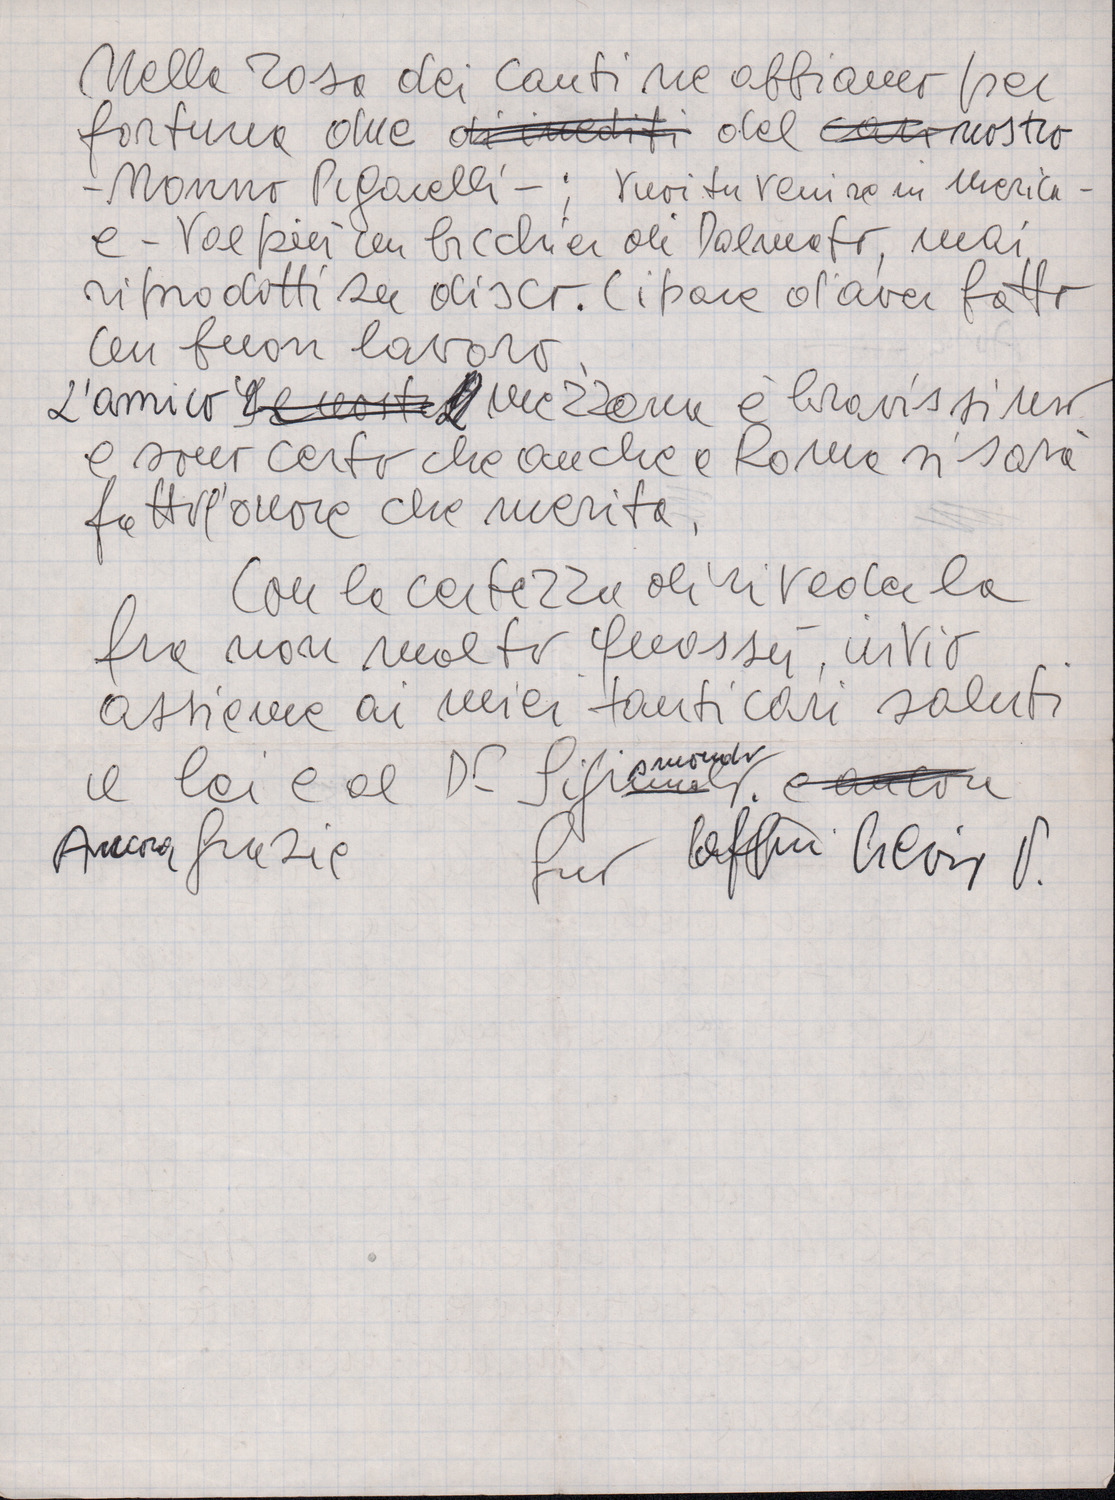 Nella rosa dei canti ne abbiamo per
fortuna due di inediti del caro nostro
- Nonno Pigarelli - ; vuoi tu venire in Merica -
e - Val più un bicchier di Dalmato, mai
riprodotti su disco. Ci pare d'aver fatto
un buon lavoro.
L'amico Mezzena è bravissimo
e sono certo che anche a Roma si sarà
fatto l'onore che merita.
Con la certezza di rivederla
fra non molto quassù, invio
assieme ai miei tanti cari saluti
a lei e al Dr Sigismondo. e ancora
Ancora grazie suo